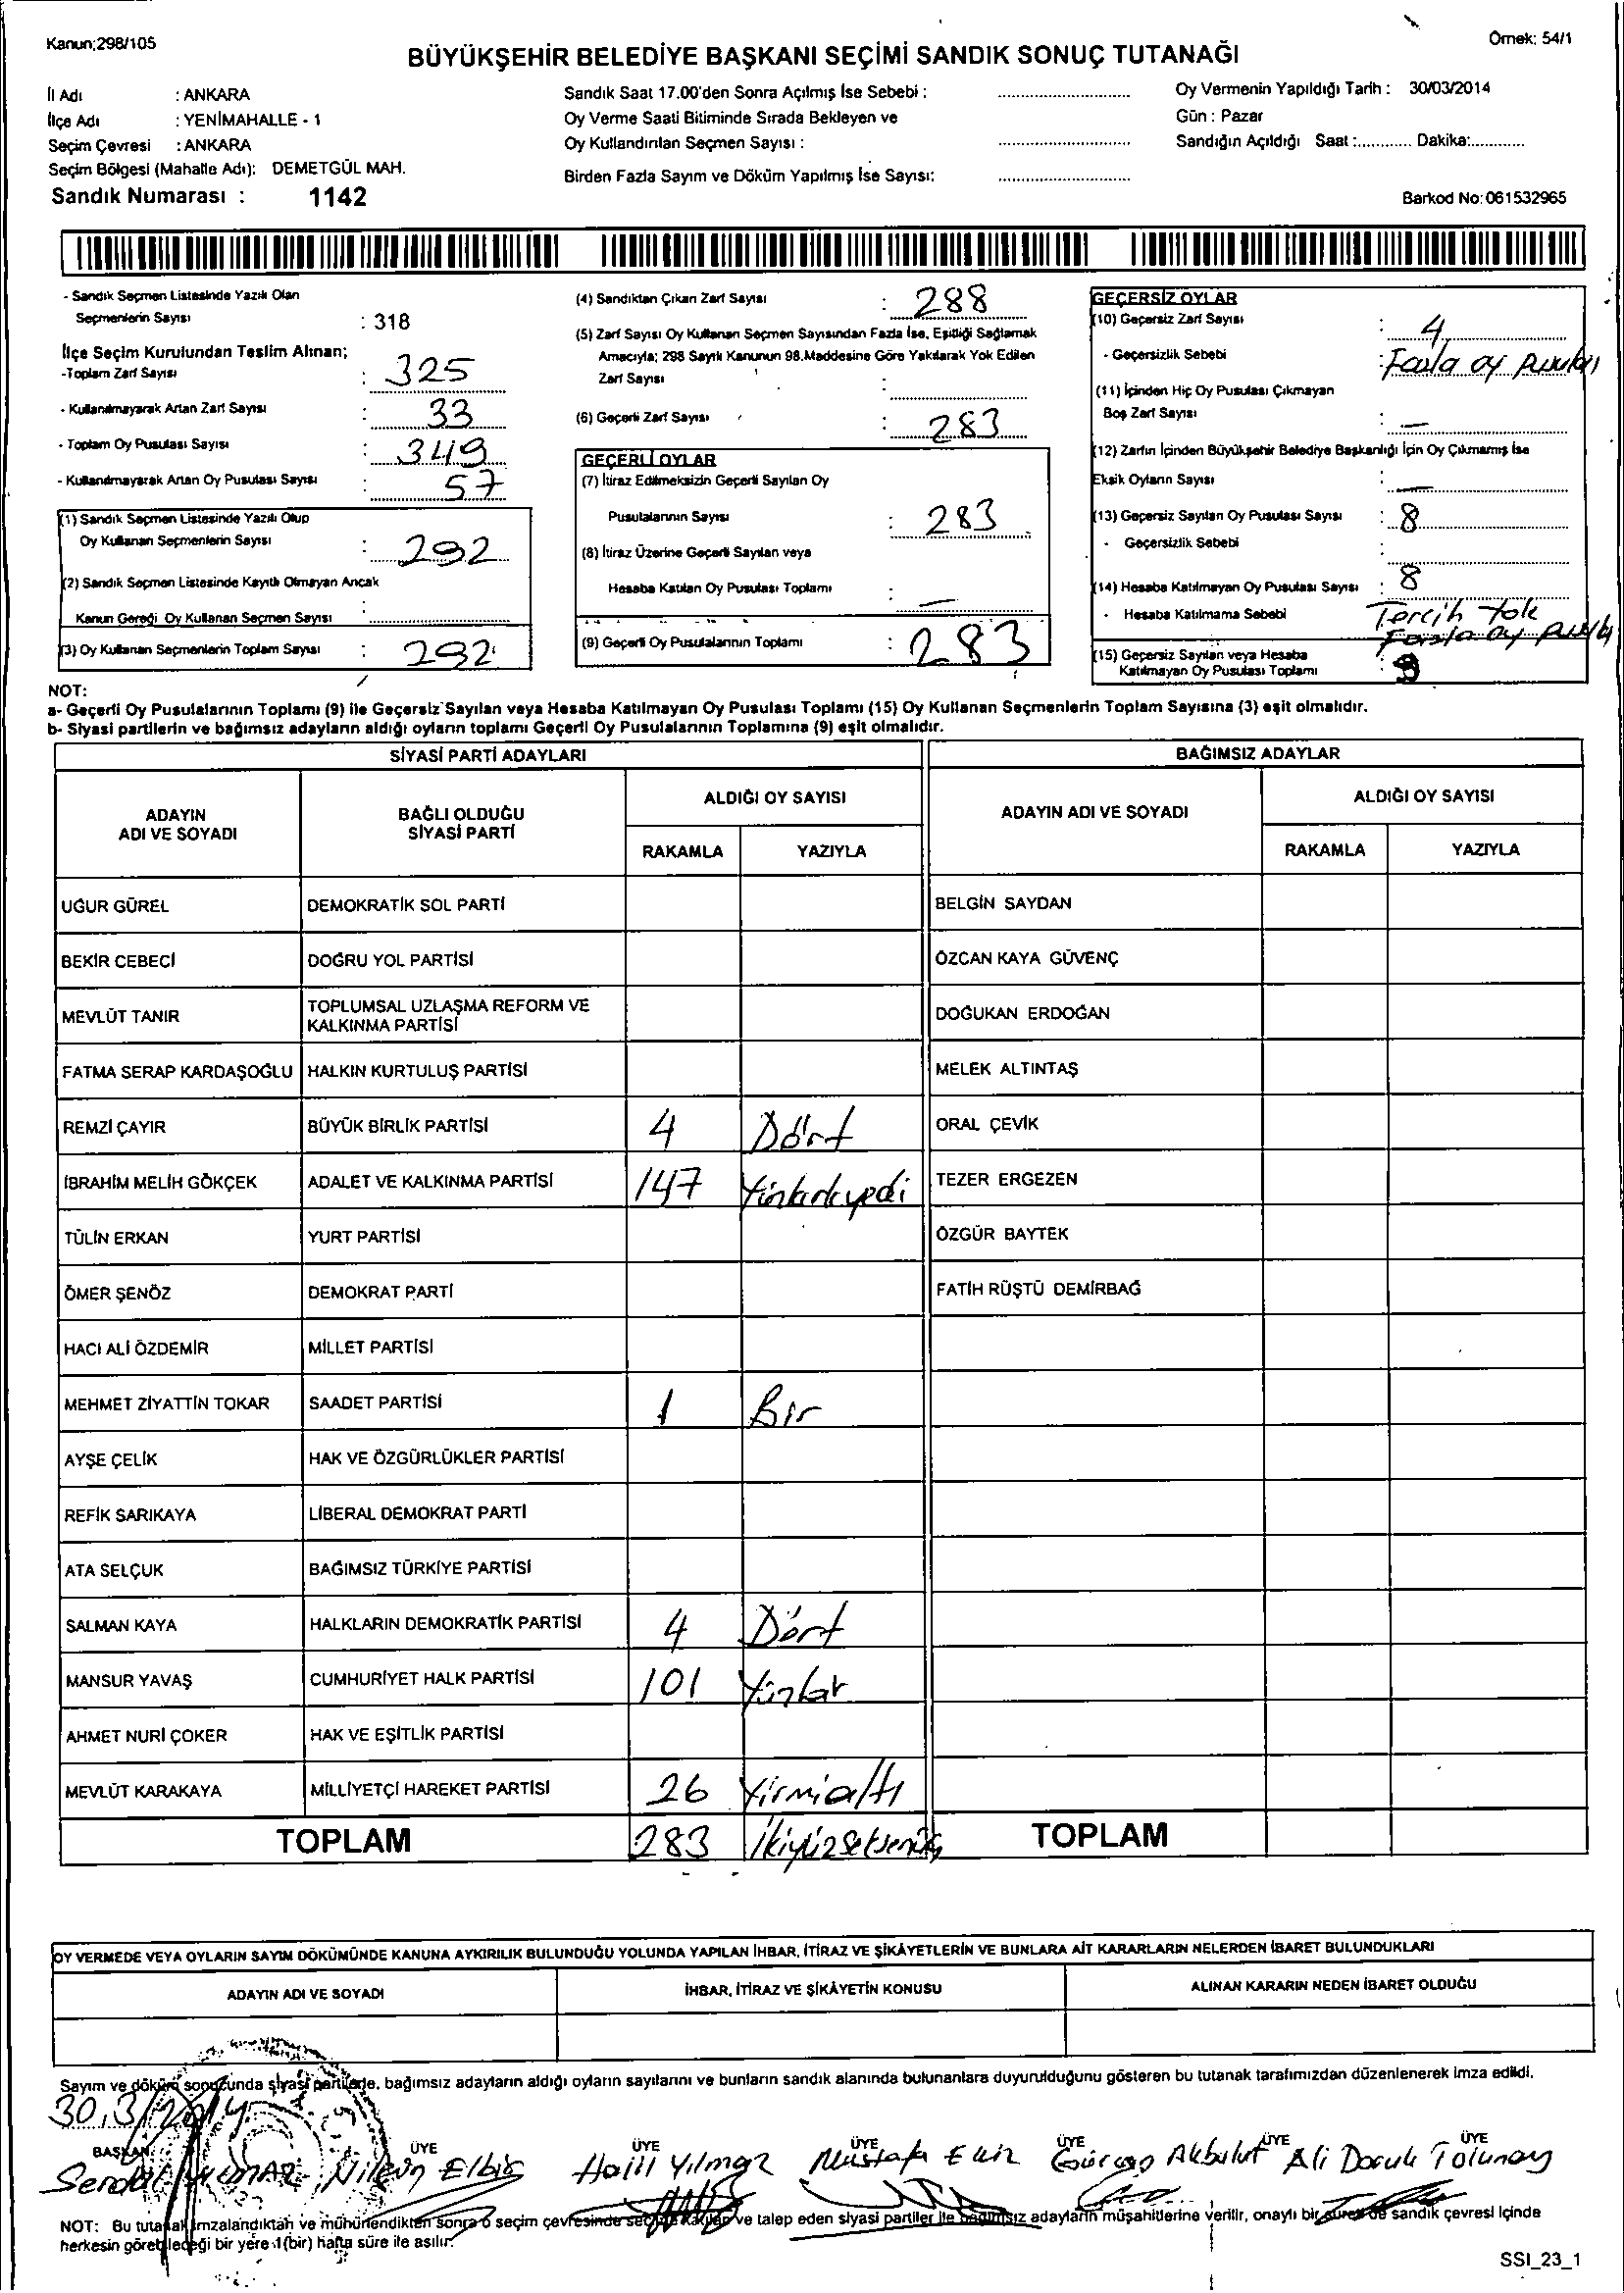 Kanun;298/105
Örnek: 54/1
BÜYÜKŞEHİR BELEDİYE BAŞKANI SEÇİMİ SANDIK SONUÇ TUTANAĞI
İl Adı : ANKARA
İlçe Adı : YENİMAHALLE - 1
Seçim Çevresi : ANKARA
Seçim Bölgesi (Mahalle Adı): DEMETGÜL MAH.
Sandık Numarası : 1142
Sandık Saat 17.00'den Sonra Açılmış İse Sebebi :
Oy Verme Saati Bitiminde Sırada Bekleyen ve
Oy Kullandırılan Seçmen Sayısı :
Birden Fazla Sayım ve Döküm Yapılmış İse Sayısı:
Oy Vermenin Yapıldığı Tarih : 30/03/2014
Gün : Pazar
Sandığın Açıldığı Saat :............ Dakika:............
Barkod No: 061532965
- Sandık Seçmen Listesinde Yazılı Olan
Seçmenlerin Sayısı : 318
İlçe Seçim Kurulundan Teslim Alınan;
-Toplam Zarf Sayısı : 325
- Kullanılmayarak Artan Zarf Sayısı : 33
- Toplam Oy Pusulası Sayısı : 349
- Kullanılmayarak Artan Oy Pusulası Sayısı : 57
(1) Sandık Seçmen Listesinde Yazılı Olup
Oy Kullanan Seçmenlerin Sayısı : 292
(2) Sandık Seçmen Listesinde Kayıtlı Olmayan Ancak
Kanun Gereği Oy Kullanan Seçmen Sayısı :
(3) Oy Kullanan Seçmenlerin Toplam Sayısı : 292
(4) Sandıktan Çıkan Zarf Sayısı : 288
(5) Zarf Sayısı Oy Kullanan Seçmen Sayısından Fazla İse, Eşitliği Sağlamak
Amacıyla; 298 Sayılı Kanunun 98.Maddesine Göre Yakılarak Yok Edilen
Zarf Sayısı :
(6) Geçerli Zarf Sayısı : 283
GEÇERLİ OYLAR
(7) İtiraz Edilmeksizin Geçerli Sayılan Oy
Pusulalarının Sayısı : 283
(8) İtiraz Üzerine Geçerli Sayılan veya
Hesaba Katılan Oy Pusulası Toplamı : —
(9) Geçerli Oy Pusulalarının Toplamı : 283
GEÇERSİZ OYLAR
(10) Geçersiz Zarf Sayısı : 4
- Geçersizlik Sebebi : Fazla oy pusulası
(11) İçinden Hiç Oy Pusulası Çıkmayan
Boş Zarf Sayısı : —
(12) Zarfın İçinden Büyükşehir Belediye Başkanlığı İçin Oy Çıkmamış İse
Eksik Oyların Sayısı : —
(13) Geçersiz Sayılan Oy Pusulası Sayısı : 8
- Geçersizlik Sebebi :
(14) Hesaba Katılmayan Oy Pusulası Sayısı : 8
- Hesaba Katılmama Sebebi Tercih yok
Fazla oy pusulası
(15) Geçersiz Sayılan veya Hesaba
Katılmayan Oy Pusulası Toplamı :
NOT:
a- Geçerli Oy Pusulalarının Toplamı (9) ile Geçersiz Sayılan veya Hesaba Katılmayan Oy Pusulası Toplamı (15) Oy Kullanan Seçmenlerin Toplam Sayısına (3) eşit olmalıdır.
b- Siyasi partilerin ve bağımsız adayların aldığı oyların toplamı Geçerli Oy Pusulalarının Toplamına (9) eşit olmalıdır.
SİYASİ PARTİ ADAYLARI
ADAYIN ADI VE SOYADI
BAĞLI OLDUĞU SİYASİ PARTİ
ALDIĞI OY SAYISI
RAKAMLA YAZIYLA
UĞUR GÜREL DEMOKRATİK SOL PARTİ
BEKİR CEBECİ DOĞRU YOL PARTİSİ
MEVLÜT TANIR TOPLUMSAL UZLAŞMA REFORM VE
KALKINMA PARTİSİ
FATMA SERAP KARDAŞOĞLU HALKIN KURTULUŞ PARTİSİ
REMZİ ÇAYIR BÜYÜK BİRLİK PARTİSİ 4 Dört
İBRAHİM MELİH GÖKÇEK ADALET VE KALKINMA PARTİSİ 147 Yüzkırkyedi
TÜLİN ERKAN YURT PARTİSİ
ÖMER ŞENÖZ DEMOKRAT PARTİ
HACI ALİ ÖZDEMİR MİLLET PARTİSİ
MEHMET ZİYATTİN TOKAR SAADET PARTİSİ 1 Bir
AYŞE ÇELİK HAK VE ÖZGÜRLÜKLER PARTİSİ
REFİK SARIKAYA LİBERAL DEMOKRAT PARTİ
ATA SELÇUK BAĞIMSIZ TÜRKİYE PARTİSİ
SALMAN KAYA HALKLARIN DEMOKRATİK PARTİSİ 4 Dört
MANSUR YAVAŞ CUMHURİYET HALK PARTİSİ 101 Yüzbir
AHMET NURİ ÇOKER HAK VE EŞİTLİK PARTİSİ
MEVLÜT KARAKAYA MİLLİYETÇİ HAREKET PARTİSİ 26 Yirmialtı
TOPLAM 283 İkiyüzseksenüç
BAĞIMSIZ ADAYLAR
ADAYIN ADI VE SOYADI
ALDIĞI OY SAYISI
RAKAMLA YAZIYLA
BELGİN SAYDAN
ÖZCAN KAYA GÜVENÇ
DOĞUKAN ERDOĞAN
MELEK ALTINTAŞ
ORAL ÇEVİK
TEZER ERGEZEN
ÖZGÜR BAYTEK
FATİH RÜŞTÜ DEMİRBAĞ
TOPLAM
OY VERMEDE VEYA OYLARIN SAYIM DÖKÜMÜNDE KANUNA AYKIRILIK BULUNDUĞU YOLUNDA YAPILAN İHBAR, İTİRAZ VE ŞİKÂYETLERİN VE BUNLARA AİT KARARLARIN NELERDEN İBARET BULUNDUKLARI
ADAYIN ADI VE SOYADI
İHBAR, İTİRAZ VE ŞİKÂYETİN KONUSU
ALINAN KARARIN NEDEN İBARET OLDUĞU
Sayım ve döküm sonucunda siyasi partilerle, bağımsız adayların aldığı oyların sayılarını ve bunların sandık alanında bulunanlara duyurulduğunu gösteren bu tutanak tarafımızdan düzenlenerek imza edildi.
30.3/2014
BAŞKAN ÜYE ÜYE ÜYE ÜYE ÜYE ÜYE
Serdal YILMAZ Nilgün Elbir Halil Yılmaz Mustafa Ekiz Gürcan Akbulut Ali Doruk Tolunay
NOT: Bu tutanak imzalandıktan ve mühürlendikten sonra o seçim çevresinde seçime katılan ve talep eden siyasi partiler ile bağımsız adayların müşahitlerine verilir, onaylı bir sureti de sandık çevresi içinde
herkesin görebileceği bir yere 1(bir) hafta süre ile asılır.
SSI_23_1